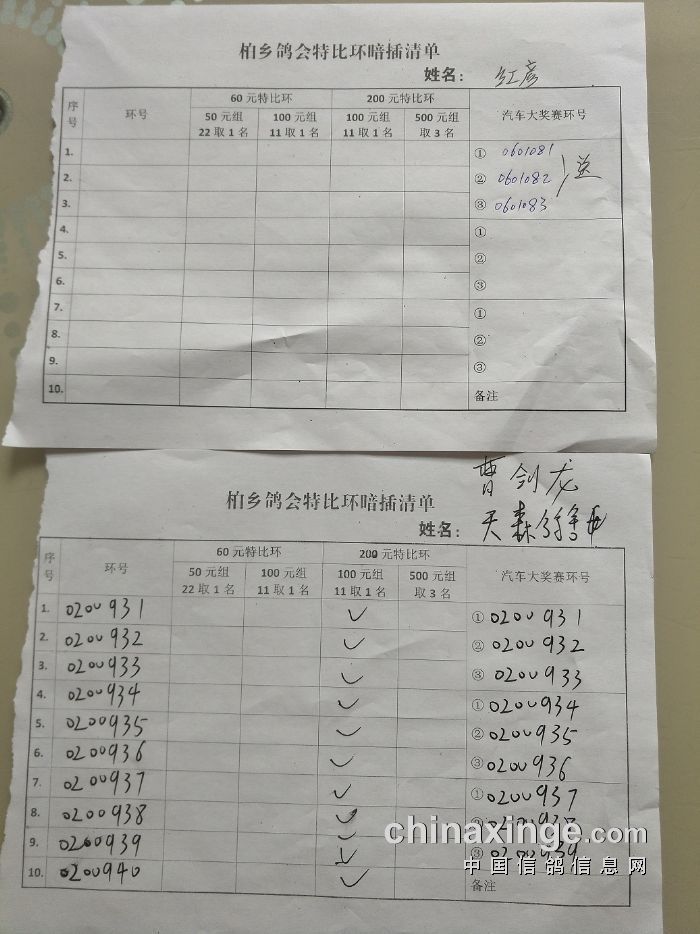 柏乡鸽会特比环暗插清单
姓名： 红彦
序号 环号 60元特比环 200元特比环 汽车大奖赛环号
50元组 22取1名 100元组 11取1名 100元组 11取1名 500元组 取3名
1. ① 0601081
2. ② 0601082 送
3. ③ 0601083
4. ①
5. ②
6. ③
7. ①
8. ②
9. ③
10. 备注
曹剑龙
柏乡鸽会特比环暗插清单
姓名： 天森
序号 环号 60元特比环 200元特比环 汽车大奖赛环号
50元组 22取1名 100元组 11取1名 100元组 11取1名 500元组 取3名
1. 0200931 ✓ ① 0200931
2. 0200932 ✓ ② 0200932
3. 0200933 ✓ ③ 0200933
4. 0200934 ✓ ① 0200934
5. 0200935 ✓ ② 0200935
6. 0200936 ✓ ③ 0200936
7. 0200937 ✓ ① 0200937
8. 0200938 ✓ ② 0200938
9. 0200939 ✓ ③ 0200939
10. 0200940 ✓ 备注
chinaxinge.com
中国信鸽信息网